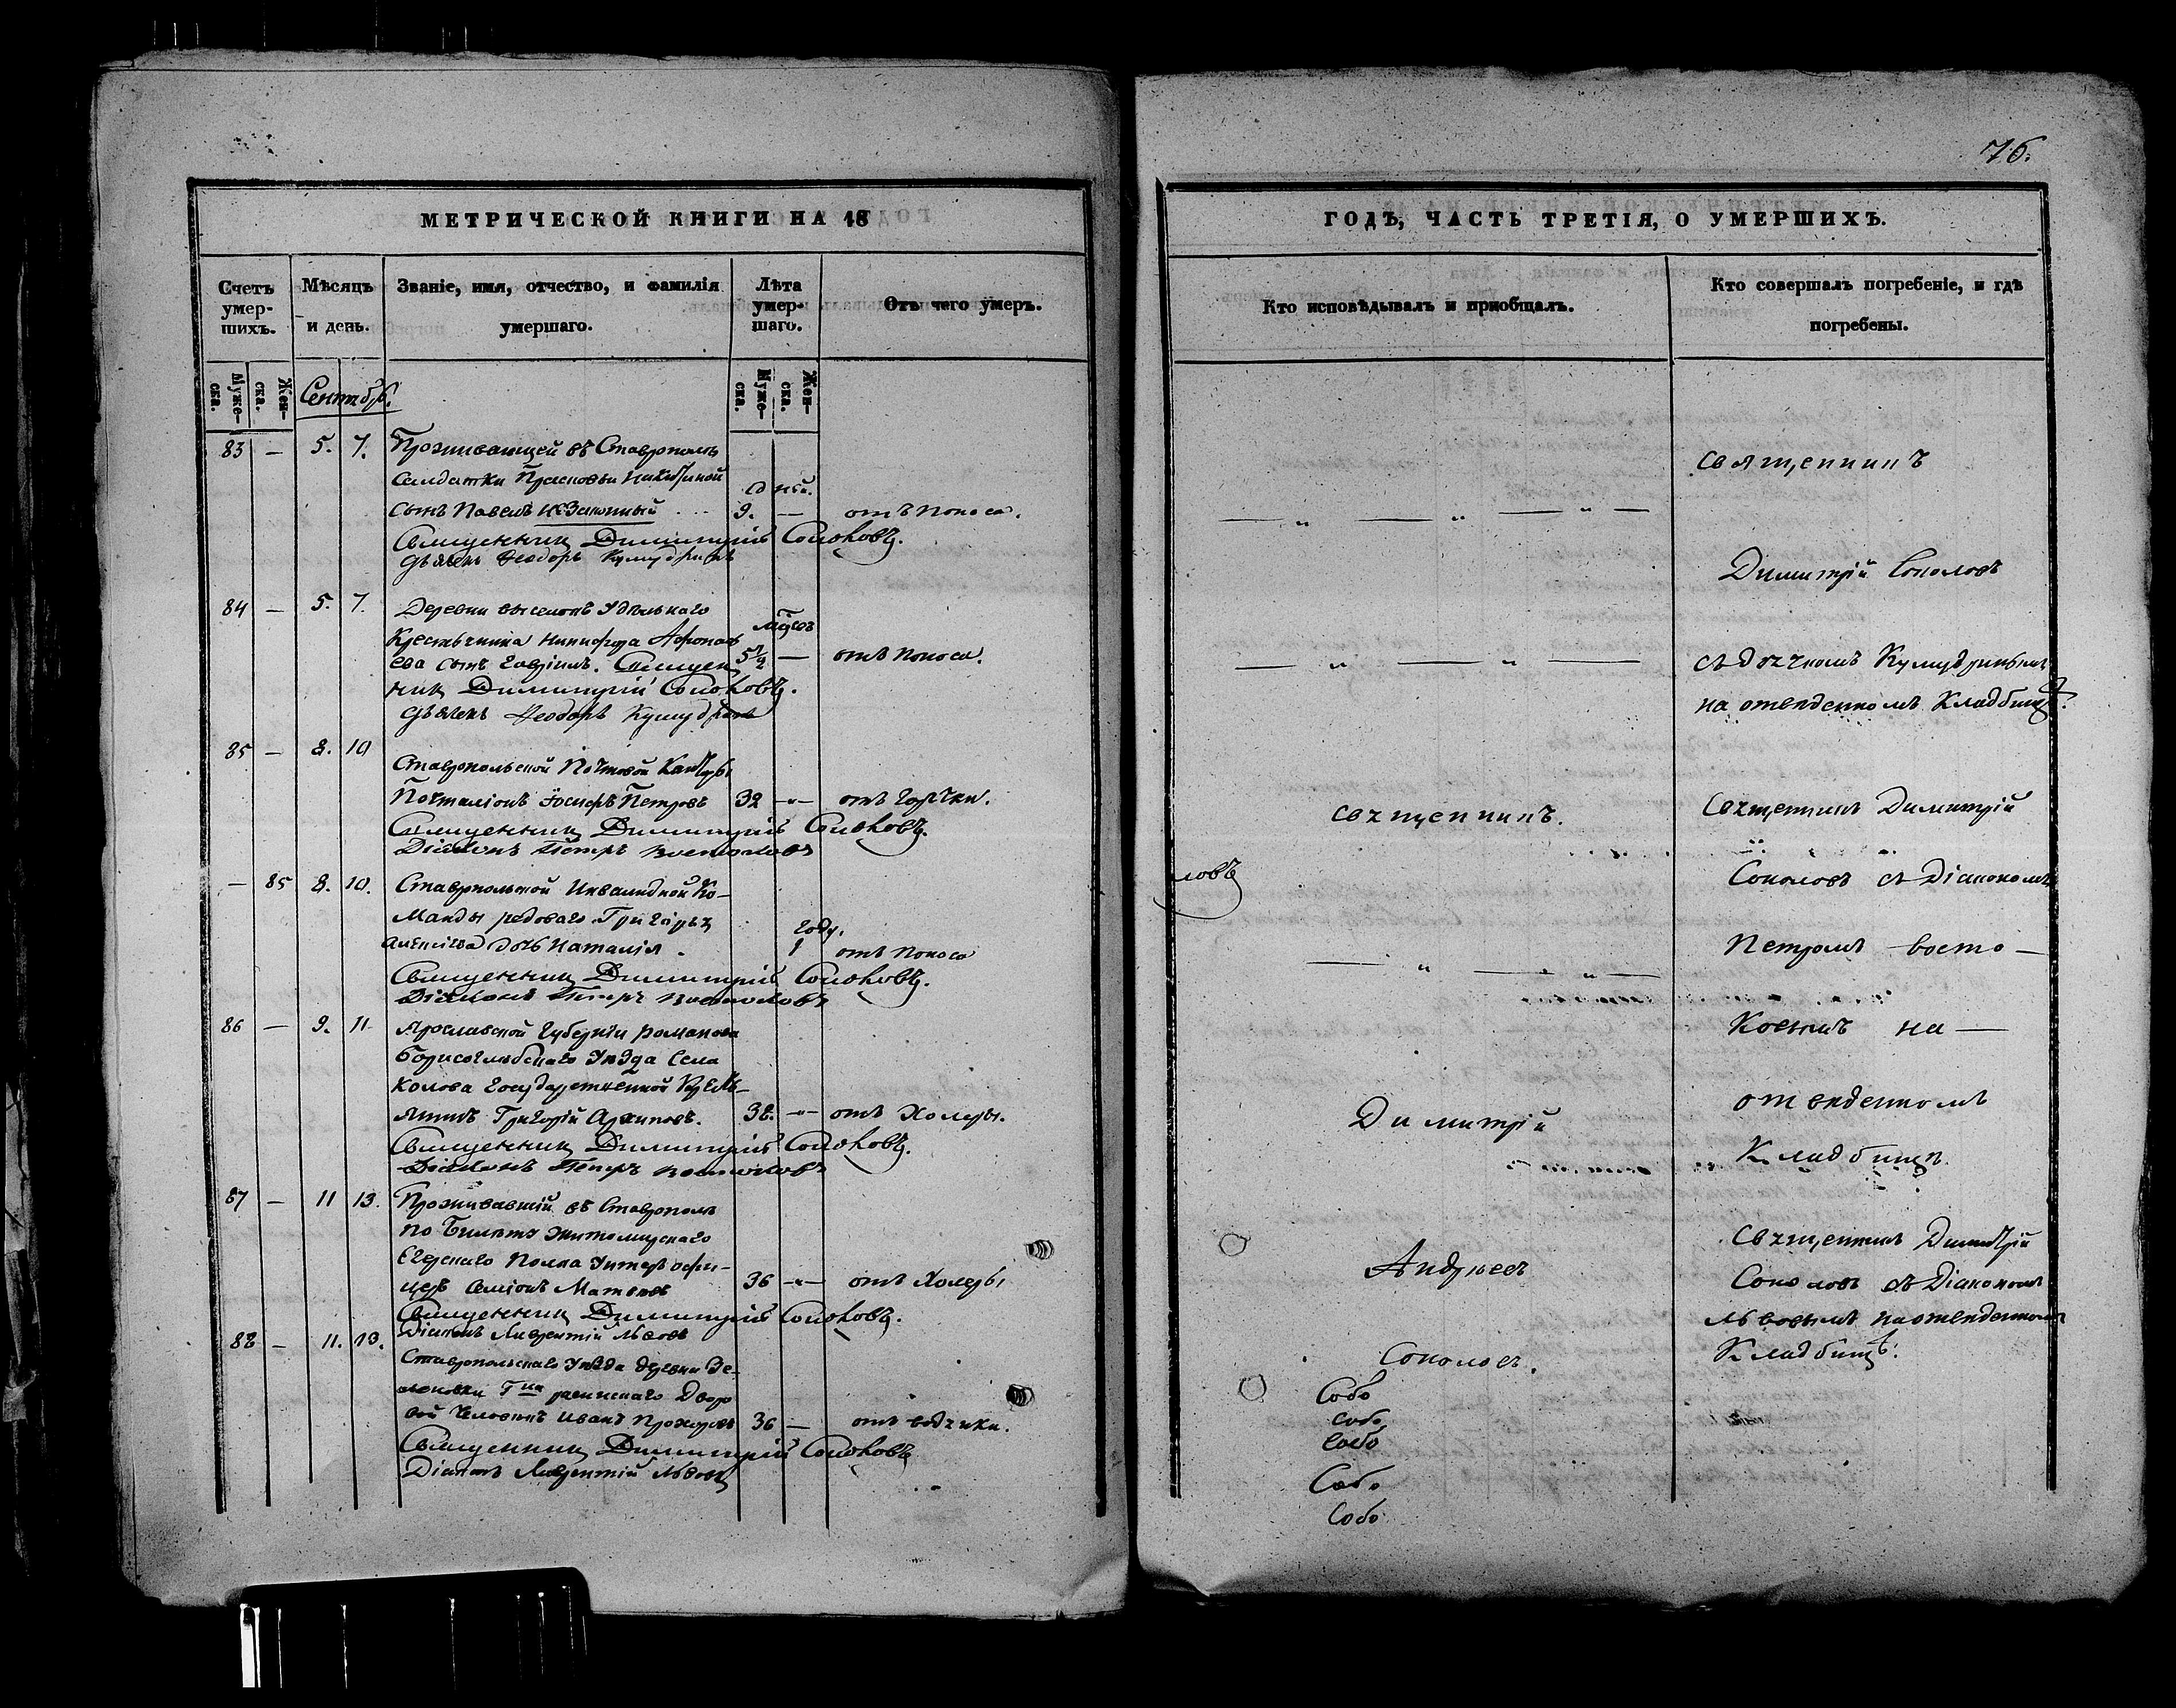 76.
МЕТРИЧЕСКОЙ КНИГИ НА 18
Счетъ умер-шихъ.
Мѣсяцъ и день.
Званіе, имя, отчество, и фамилія умершаго.
Лѣта умер-шаго.
Отъ чего умеръ.
Муже-ска.
Жен-ска.
Муже-ска.
Жен-ска.
Сентябр.
83 — 5. 7. Проживающей въ Ставрополѣ
Салдатки Прасковьи Никитиной
сынъ Павелъ незаконный 9. — отъ поноса.
Священникъ Димитрій Соколовъ.
Дьячекъ Ѳеодоръ Кумудринъ
84 — 5. 7. Деревни выселокъ Удѣльнаго
Крестьянина Никифора Афонась
ева сынъ Гавріилъ. Священ 5 1/2 — отъ поноса.
никъ Димитрій Соколовъ.
Дьячекъ Ѳеодоръ Кумудринъ
85 — 8. 10 Ставропольской Почтовой Канторы
Почталіонъ Іосифъ Петровъ 32 —"— отъ горячки.
Священникъ Димитрій Соколовъ.
Діаконъ Петръ Востоковъ
— 85 8. 10. Ставропольской Инвалидной Ко-
манды рядоваго Григорья году.
Алексѣева дочь Наталія. 1 отъ поноса
Священникъ Димитрій Соколовъ.
Діаконъ Петръ Востоковъ
86 — 9. 11 Ярославской Губерніи Романова
Борисоглѣбскаго Уѣзда Села
Колова Государственной Кресть-
янинъ Григорій Архиповъ. 38. —"— отъ Холеры.
Священникъ Димитрій Соколовъ.
Діаконъ Петръ Востоковъ
87 — 11 13. Проживавшій въ Ставрополѣ
по Билету Житомирскаго
Егерскаго Полка Унтеръ офи-
церъ Семіонъ Матвѣевъ 36 —"— отъ Холеры
Священникъ Димитрій Соколовъ.
Діаконъ Лаврентій Львовъ
88 — 11. 13.
Ставропольскаго Уѣзда деревни Зе-
леновки Гна Дворо
вой Человѣкъ Иванъ Прохоровъ 36 — отъ водянки.
Священникъ Димитрій Соколовъ
Діаконъ Лаврентій Львовъ
ГОДЪ, ЧАСТЬ ТРЕТІЯ, О УМЕРШИХЪ.
Кто исповѣдывалъ и пріобщалъ.
Кто совершалъ погребеніе, и гдѣ погребены.
Священникъ
— " — " — " —
Димитрій Соколовъ
— " — " — съ дьячкомъ Кумудринымъ
на отведенномъ Кладбищѣ.
Священникъ. Священникъ Димитрій
ловъ Соколовъ съ Діакономъ
Петромъ Восто —
— " — " —
ковымъ на —
Димитрій отведенномъ
Кладбищѣ.
Священникъ Димитрій
Андреевъ Соколовъ съ Діакономъ
Львовымъ на отведенномъ
Соколовъ. Кладбищѣ.
Собо
собо
собо
Собо
Собо